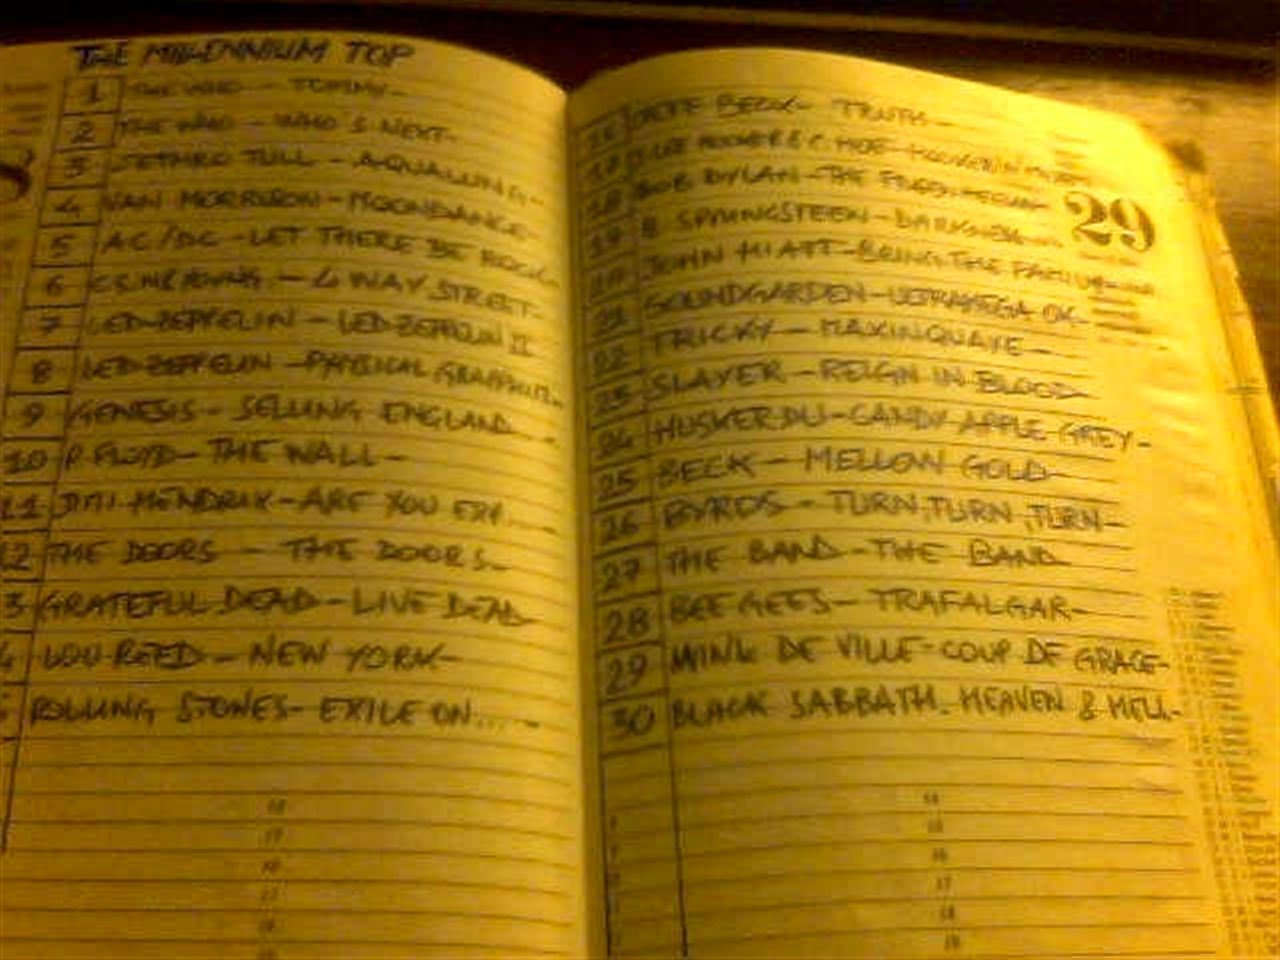 THE MILLENNIUM TOP
1 THE WHO - TOMMY
2 THE WHO - WHO'S NEXT
3 JETHRO TULL - AQUALUNG
4 VAN MORRISON - MOONDANCE
5 AC/DC - LET THERE BE ROCK
6 4 WAY STREET
7 LED ZEPPELIN - LED ZEPPELIN II
8 LED ZEPPELIN - PHYSICAL GRAFFITI
9 GENESIS - SELLING ENGLAND...
10 P. FLOYD - THE WALL
11 JIMI HENDRIX - ARE YOU EXP...
12 THE DOORS - THE DOORS
3 GRATEFUL DEAD - LIVE DEAD
LOU REED - NEW YORK
ROLLING STONES - EXILE ON...
JEFF BECK - TRUTH
18 BOB DYLAN - THE FREEWHEELIN
19 B. SPRINGSTEEN - DARKNESS
20 JOHN HIATT - BRING THE FAMILY
21 SOUNDGARDEN - ULTRAMEGA OK
22 TRICKY - MAXINQUAYE
23 SLAYER - REIGN IN BLOOD
24 HUSKER DU - CANDY APPLE GREY
25 BECK - MELLOW GOLD
26 BYRDS - TURN, TURN, TURN
27 THE BAND - THE BAND
28 BEE GEES - TRAFALGAR
29 MINK DE VILLE - COUP DE GRACE
30 BLACK SABBATH. HEAVEN & HELL
29